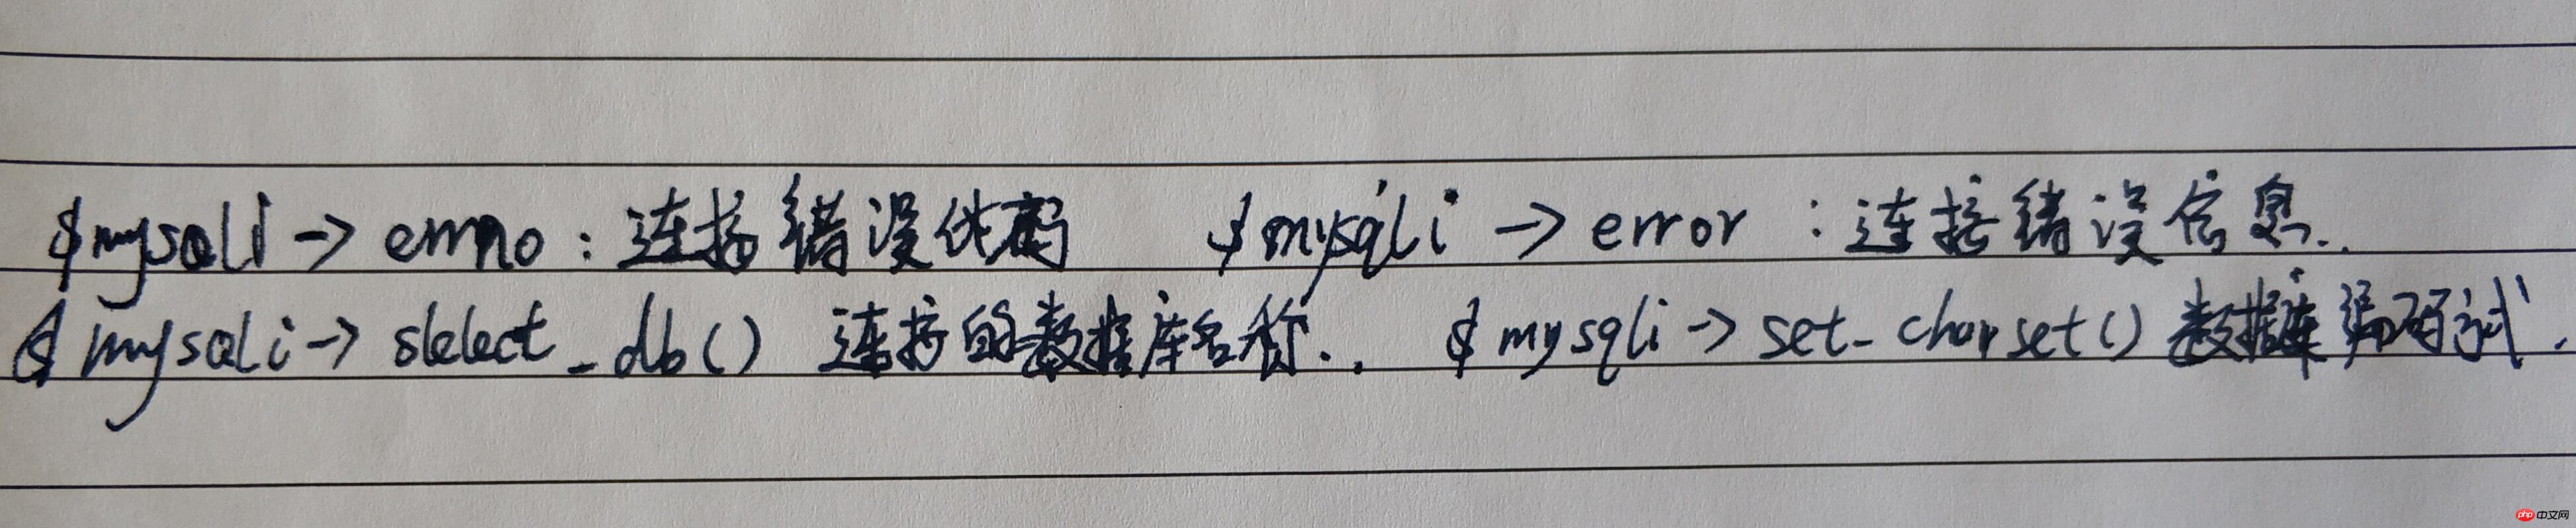 $mysqli -> errno : 连接错误代码 $mysqli -> error : 连接错误信息..
$mysqli -> slelect_db() 连接的数据库名称.. $mysqli -> set_charset() 数据库编码试.
php 中文网